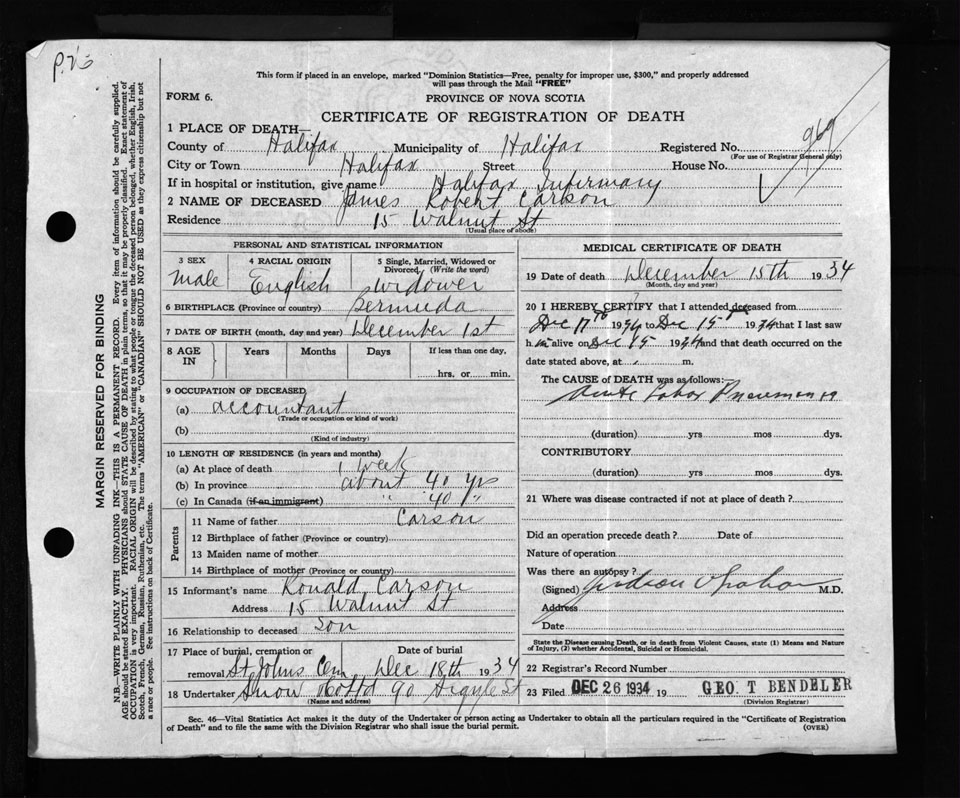 P.26
This form if placed in an envelope, marked "Dominion Statistics—Free, penalty for improper use, $300," and properly addressed
will pass through the Mail "FREE"
FORM 6.
PROVINCE OF NOVA SCOTIA
CERTIFICATE OF REGISTRATION OF DEATH
969
1 PLACE OF DEATH—
County of Halifax Municipality of Halifax Registered No.
(For use of Registrar General only)
City or Town Halifax Street House No.
If in hospital or institution, give name Halifax Infirmary
2 NAME OF DECEASED James Robert Carson
Residence 15 Walnut St
(Usual place of abode)
PERSONAL AND STATISTICAL INFORMATION
3 SEX 4 RACIAL ORIGIN 5 Single, Married, Widowed or
Divorced, (Write the word)
Male English Widower
6 BIRTHPLACE (Province or country) Bermuda
7 DATE OF BIRTH (month, day and year) December 1st
8 AGE IN Years Months Days If less than one day,
hrs. or min.
9 OCCUPATION OF DECEASED
(a) accountant
(Trade or occupation or kind of work)
(b)
(Kind of industry)
10 LENGTH OF RESIDENCE (in years and months)
(a) At place of death 1 week
(b) In province about 40 yrs
(c) In Canada (if an immigrant) " 40 "
Parents
11 Name of father Carson
12 Birthplace of father (Province or country)
13 Maiden name of mother
14 Birthplace of mother (Province or country)
15 Informant's name Ronald Carson
Address 15 Walnut St
16 Relationship to deceased Son
17 Place of burial, cremation or Date of burial
removal St Johns Cem Dec 18th 1934
18 Undertaker Snow & Co Ltd 90 Argyle St
(Name and address)
MEDICAL CERTIFICATE OF DEATH
19 Date of death December 15th 1934
(Month, day and year)
20 I HEREBY CERTIFY that I attended deceased from
Dec 1934 to Dec 15th 1934 that I last saw
h im alive on Dec 15 1934 and that death occurred on the
date stated above, at m.
The CAUSE of DEATH was as follows:—
Acute Lobar Pneumonia
(duration) yrs mos dys.
CONTRIBUTORY
(duration) yrs mos dys.
21 Where was disease contracted if not at place of death?
Did an operation precede death? Date of
Nature of operation
Was there an autopsy?
(Signed) Judson Graham M.D.
Address
Date
State the Disease causing Death, or in death from Violent Causes, state (1) Means and Nature
of Injury, (2) whether Accidental, Suicidal or Homicidal.
22 Registrar's Record Number
23 Filed DEC 26 1934 19 GEO. T BENDELER
(Division Registrar)
Sec. 46—Vital Statistics Act makes it the duty of the Undertaker or person acting as Undertaker to obtain all the particulars required in the "Certificate of Registration
of Death" and to file the same with the Division Registrar who shall issue the burial permit.
(OVER)
MARGIN RESERVED FOR BINDING
N.B.—WRITE PLAINLY WITH UNFADING INK—THIS IS A PERMANENT RECORD. Every item of information should be carefully supplied.
AGE should be stated EXACTLY. PHYSICIANS should STATE CAUSE OF DEATH in plain terms, so that it may be properly classified. Exact statement of
OCCUPATION is very important. RACIAL ORIGIN will be described by stating to what people or tongue the deceased person belonged, whether English, Irish,
Scotch, French, German, Russian, Ruthenian, etc. The terms "AMERICAN" or "CANADIAN" SHOULD NOT BE USED as they express citizenship but not
a race or people. See instructions on back of Certificate.